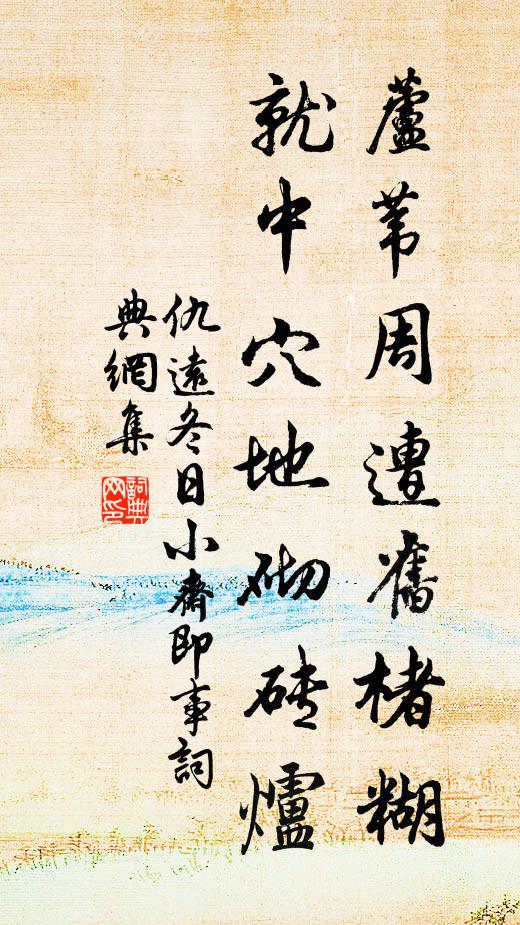 蘆葦周遭舊楮糊
就中穴地砌砖爐
仇遠冬日小齋即事詞
典網集
詞典
网印